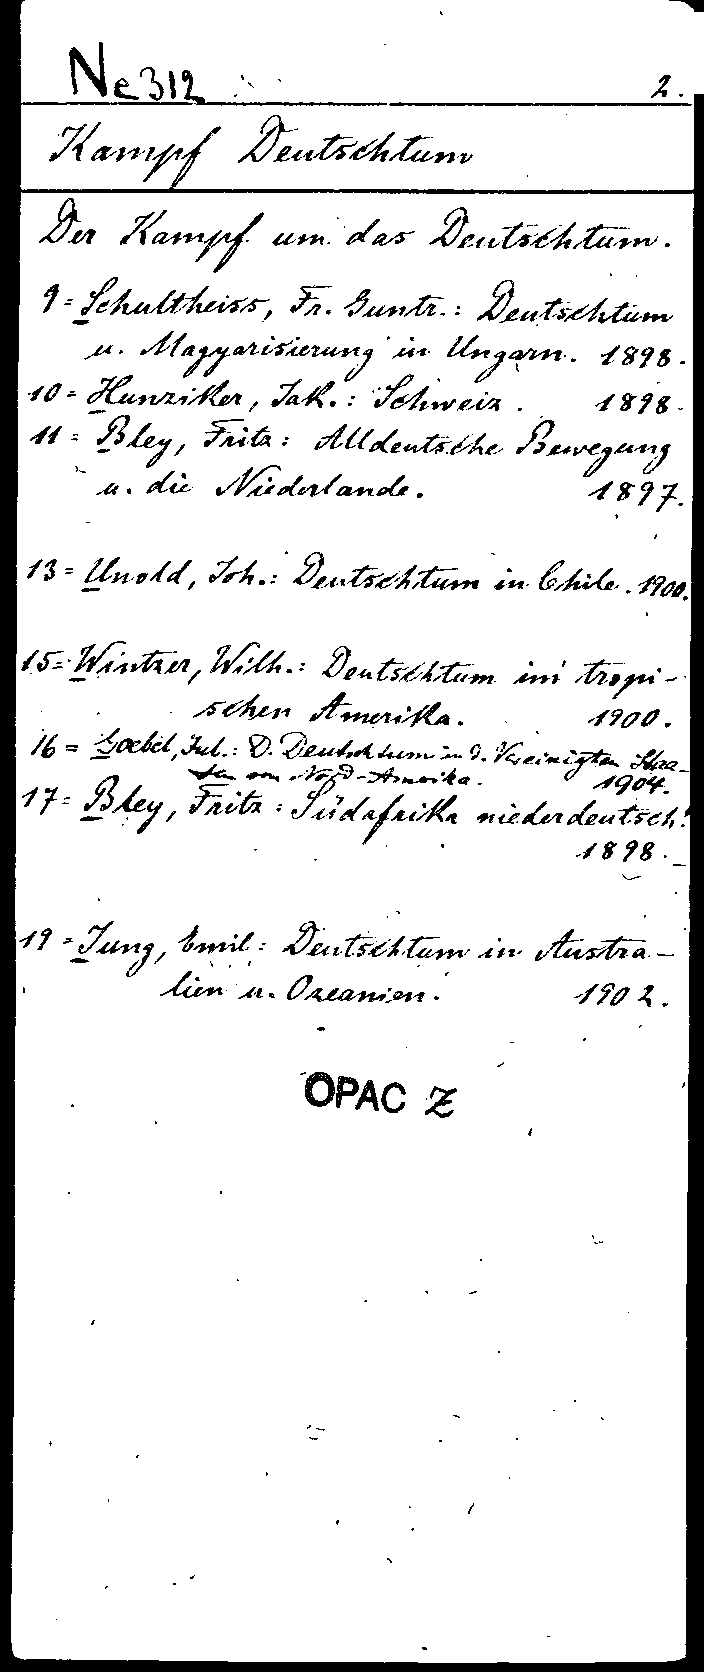 Ne 312 2.
Kampf Deutschtum
Der Kampf um das Deutschtum.
9 = Schultheiss, Fr. Guntr.: Deutschtum
u. Magyarisierung in Ungarn. 1898.
10 = Hunziker, Jak.: Schweiz. 1898.
11 = Bley, Fritz: Alldeutsche Bewegung
u. die Niederlande. 1897.
13 = Unold, Joh.: Deutschtum in Chile. 1900.
15 = Wintzer, Wilh.: Deutschtum im tropi-
schen Amerika. 1900.
16 = Goebel, Jul.: D. Deutschtum in d. Vereinigten Staa-
ten von Nord-Amerika. 1904.
17 = Bley, Fritz: Südafrika niederdeutsch!
1898.
19 = Jung, Emil: Deutschtum in Austra-
lien u. Ozeanien. 1902.
OPAC Z